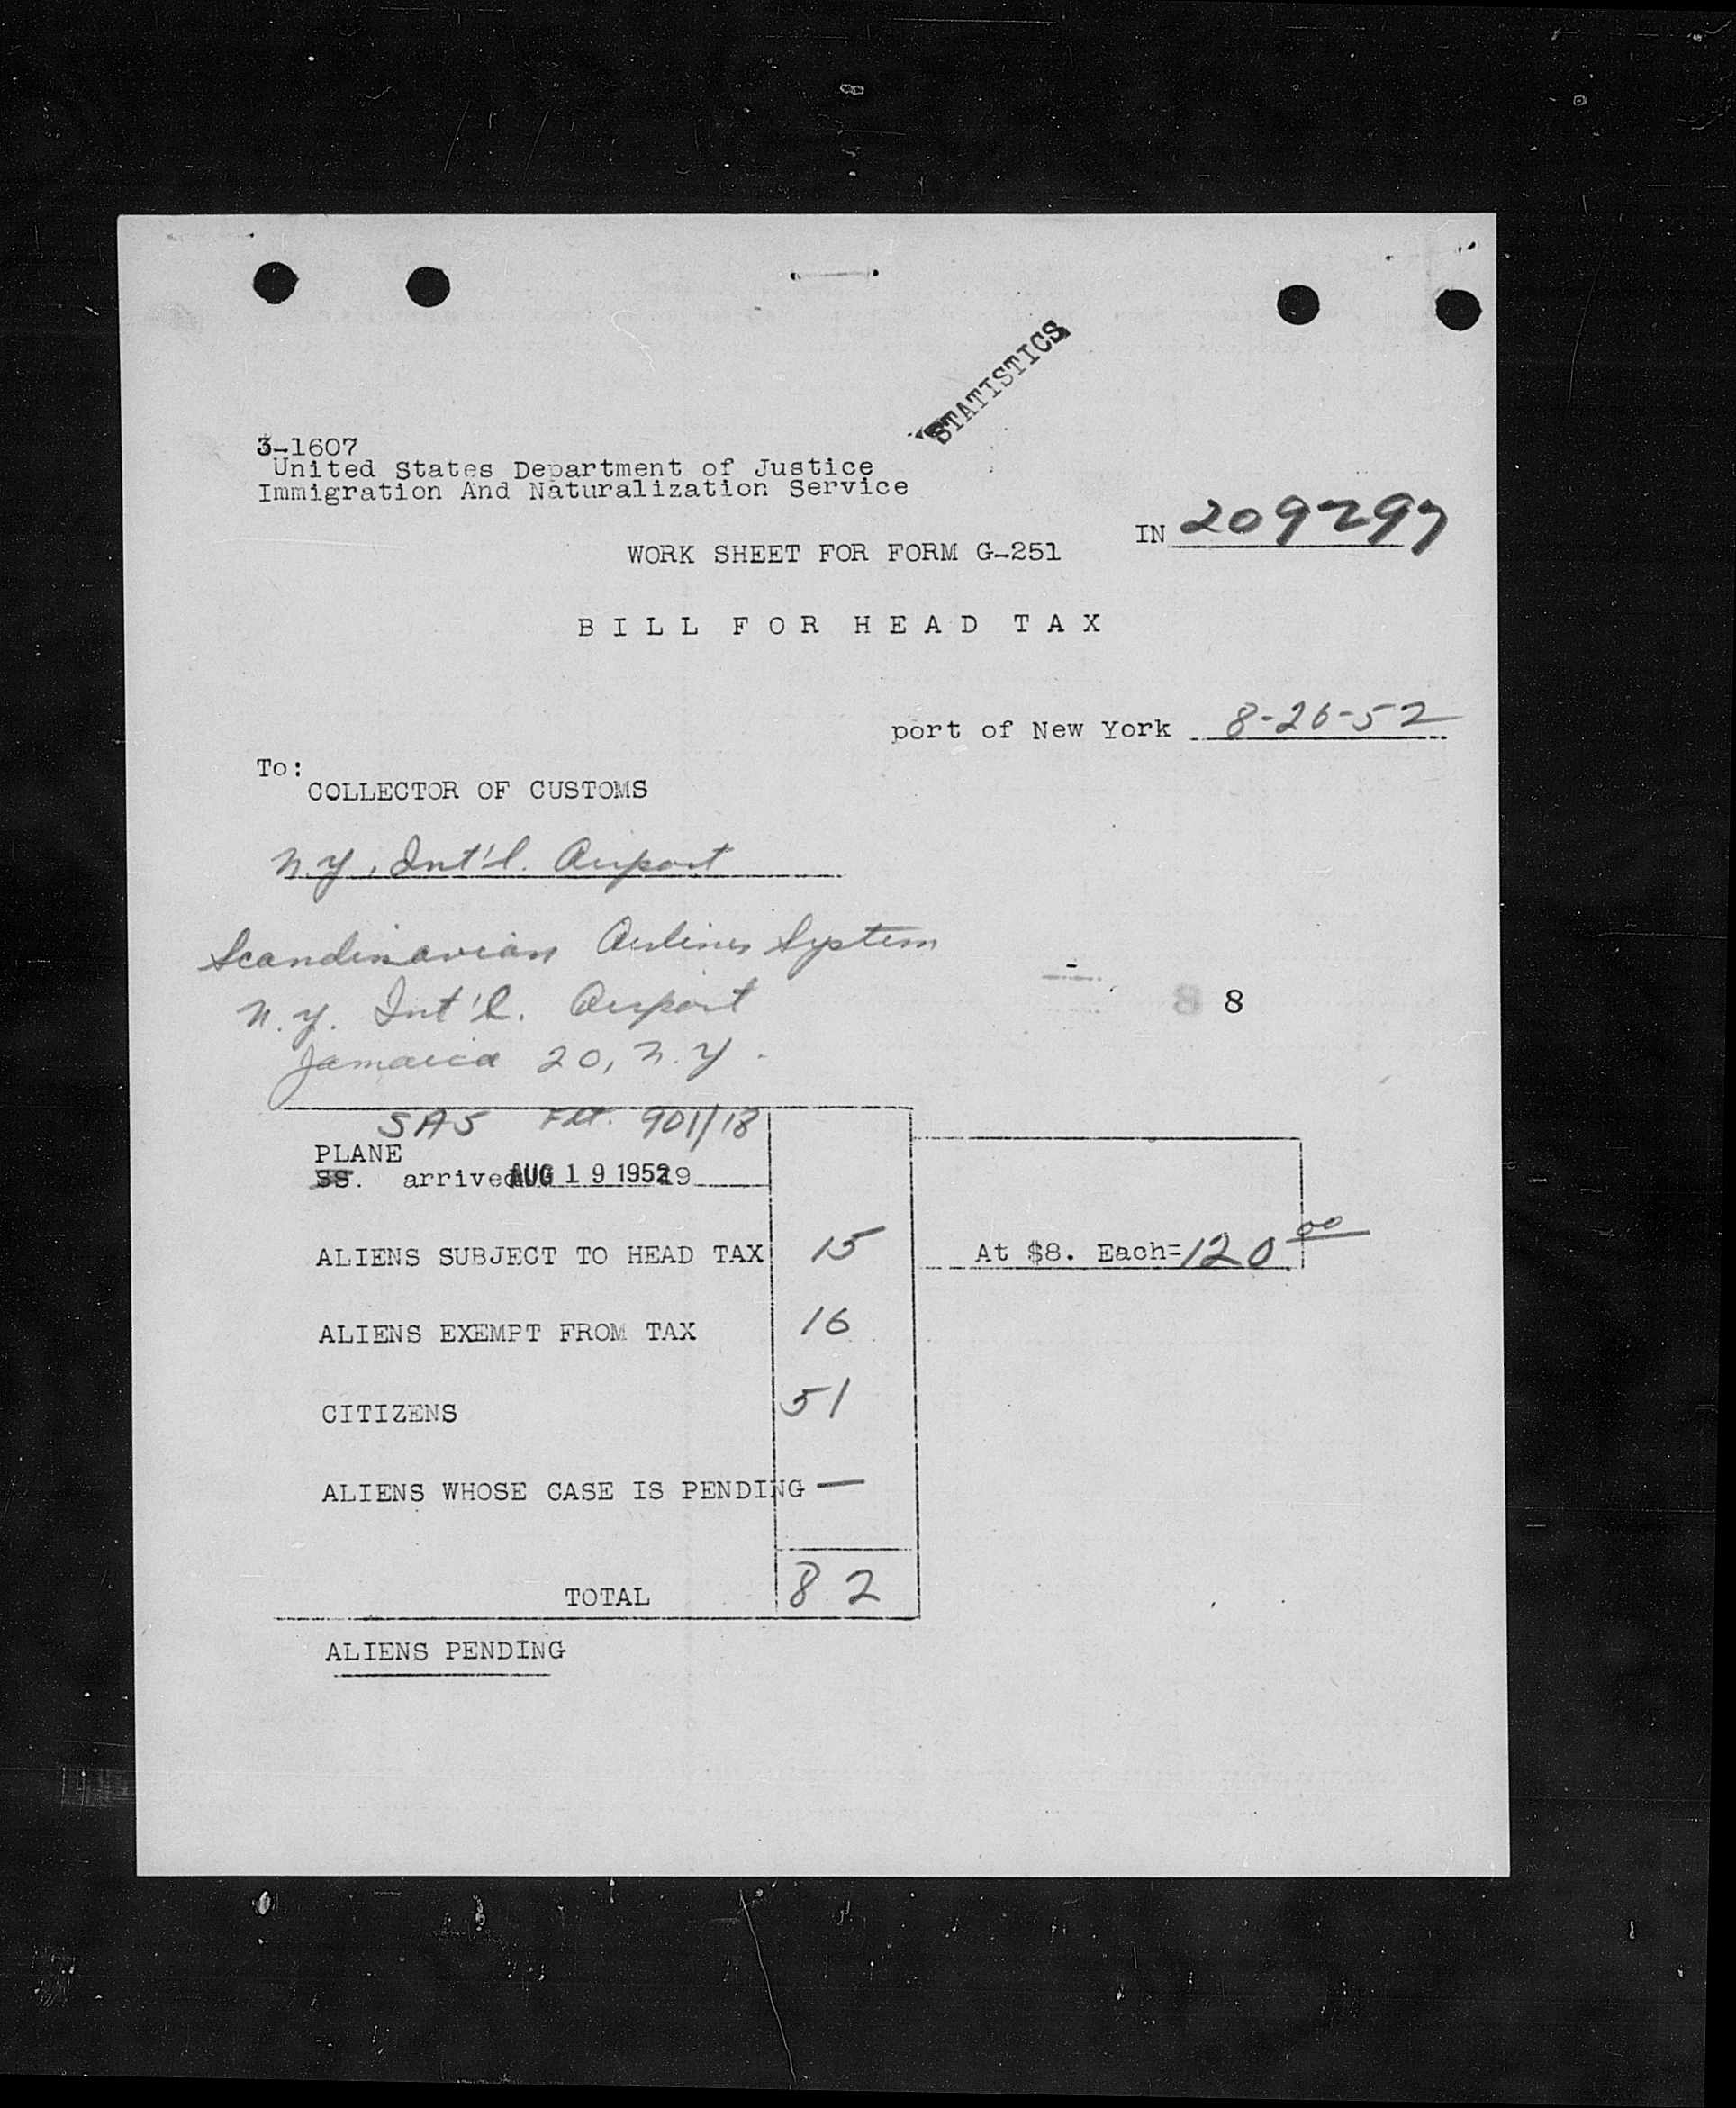 STATISTICS
3-1607
United States Department of Justice
Immigration And Naturalization Service
IN 209297
WORK SHEET FOR FORM G-251
BILL FOR HEAD TAX
port of New York 8-26-52
To:
COLLECTOR OF CUSTOMS
N.Y. Int'l. Airport
Scandinavian Airlines System
N.Y. Int'l. Airport
8 8
Jamaica 20, N.Y.
SAS Flt. 901/18
PLANE
SS. arrived AUG 19 1952 19
ALIENS SUBJECT TO HEAD TAX 15 At $8. Each=120 00
ALIENS EXEMPT FROM TAX 16
CITIZENS 51
ALIENS WHOSE CASE IS PENDING —
TOTAL 82
ALIENS PENDING